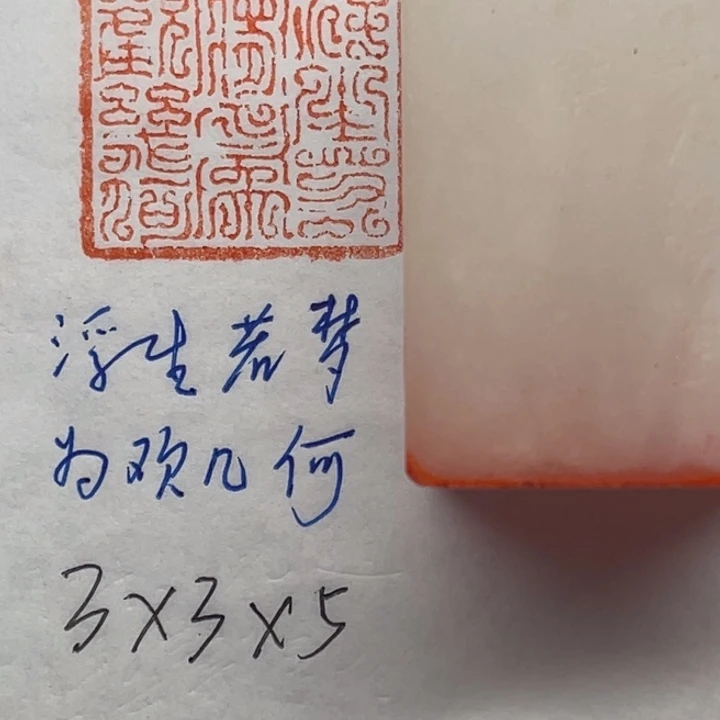 浮生若梦
为欢几何
3×3×5